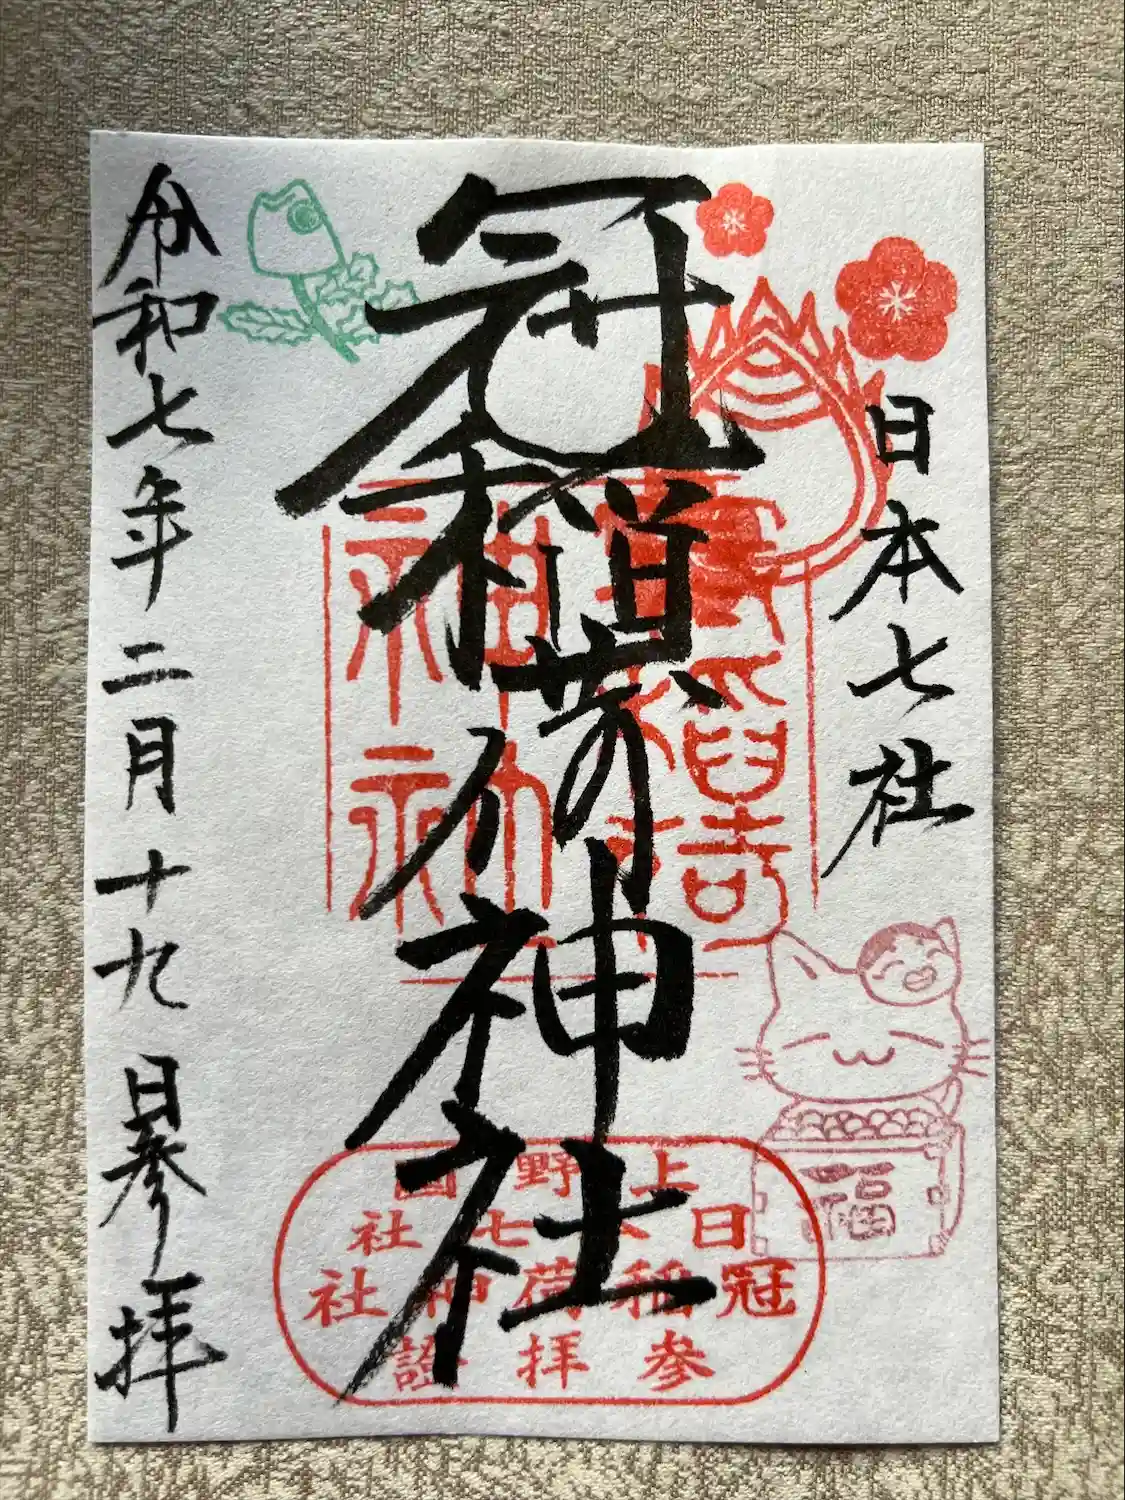 日本七社
冠稲荷神社
令和七年二月十九日参拝
上野國
日本七社
冠稲荷神社
参拝證
福